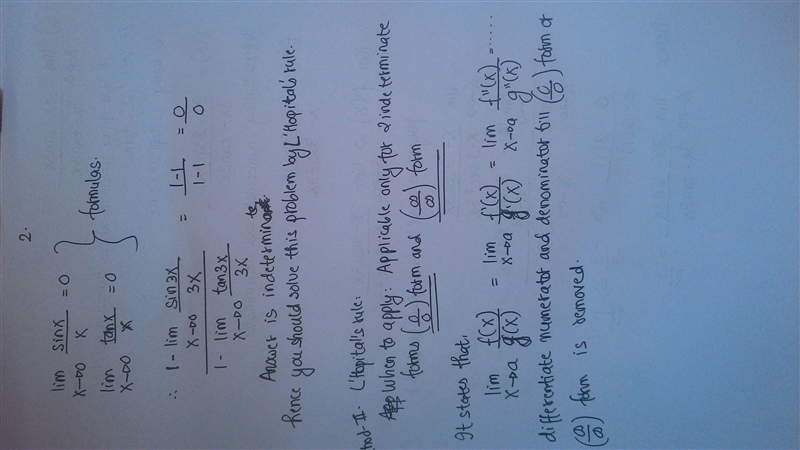 2.
lim x→0 sinx/x = 0
lim x→0 tanx/x = 0 } formulas.
∴ (1 - lim x→0 sin3x/3x) / (1 - lim x→0 tan3x/3x) = (1-1)/(1-1) = 0/0
Answer is indeterminate.
hence you should solve this problem by L'Hopital's rule.
hod-II- L'Hopital's rule.
When to apply: Applicable only for 2 indeterminate
forms (0/0) form and (∞/∞) form
It states that,
lim x→a f(x)/g(x) = lim x→a f'(x)/g'(x) = lim x→a f''(x)/g''(x) = .....
differentiate numerator and denominator till (0/0) form or
(∞/∞) form is removed.